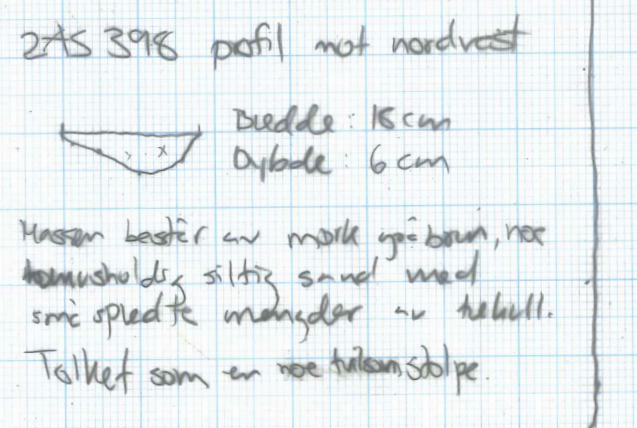 2AS 398 profil mot nordvest
Bredde: 18 cm
Dybde: 6 cm
Massen består av mørk gråbrun, noe
humusholdig siltig sand med
små spredte mengder av trekull.
Tolket som en noe tvilsom stolpe.